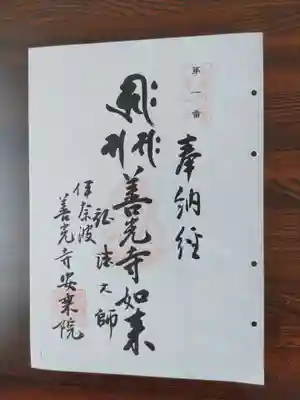 第一番
奉納経
善光寺如来
弘法大師
伊奈波
善光寺安楽院